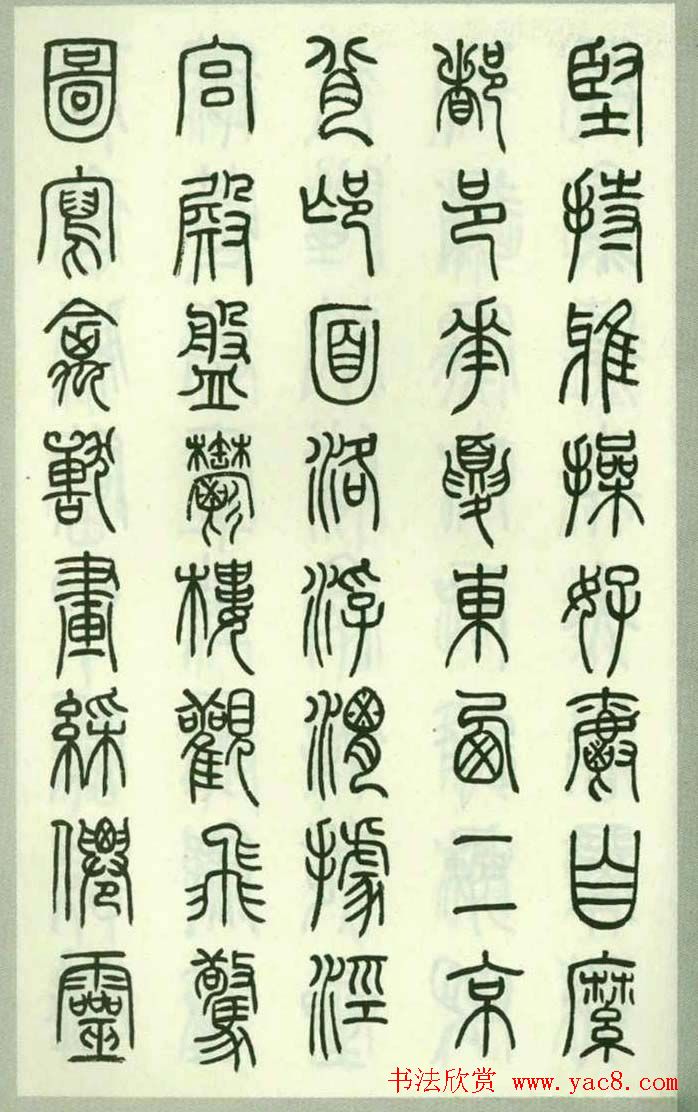 堅持雅操好爵自縻
都邑華夏東西二京
背邙面洛浮渭據涇
宮殿盤鬱樓觀飛驚
圖寫禽獸畫綵僊靈
书法欣赏 www.yac8.com